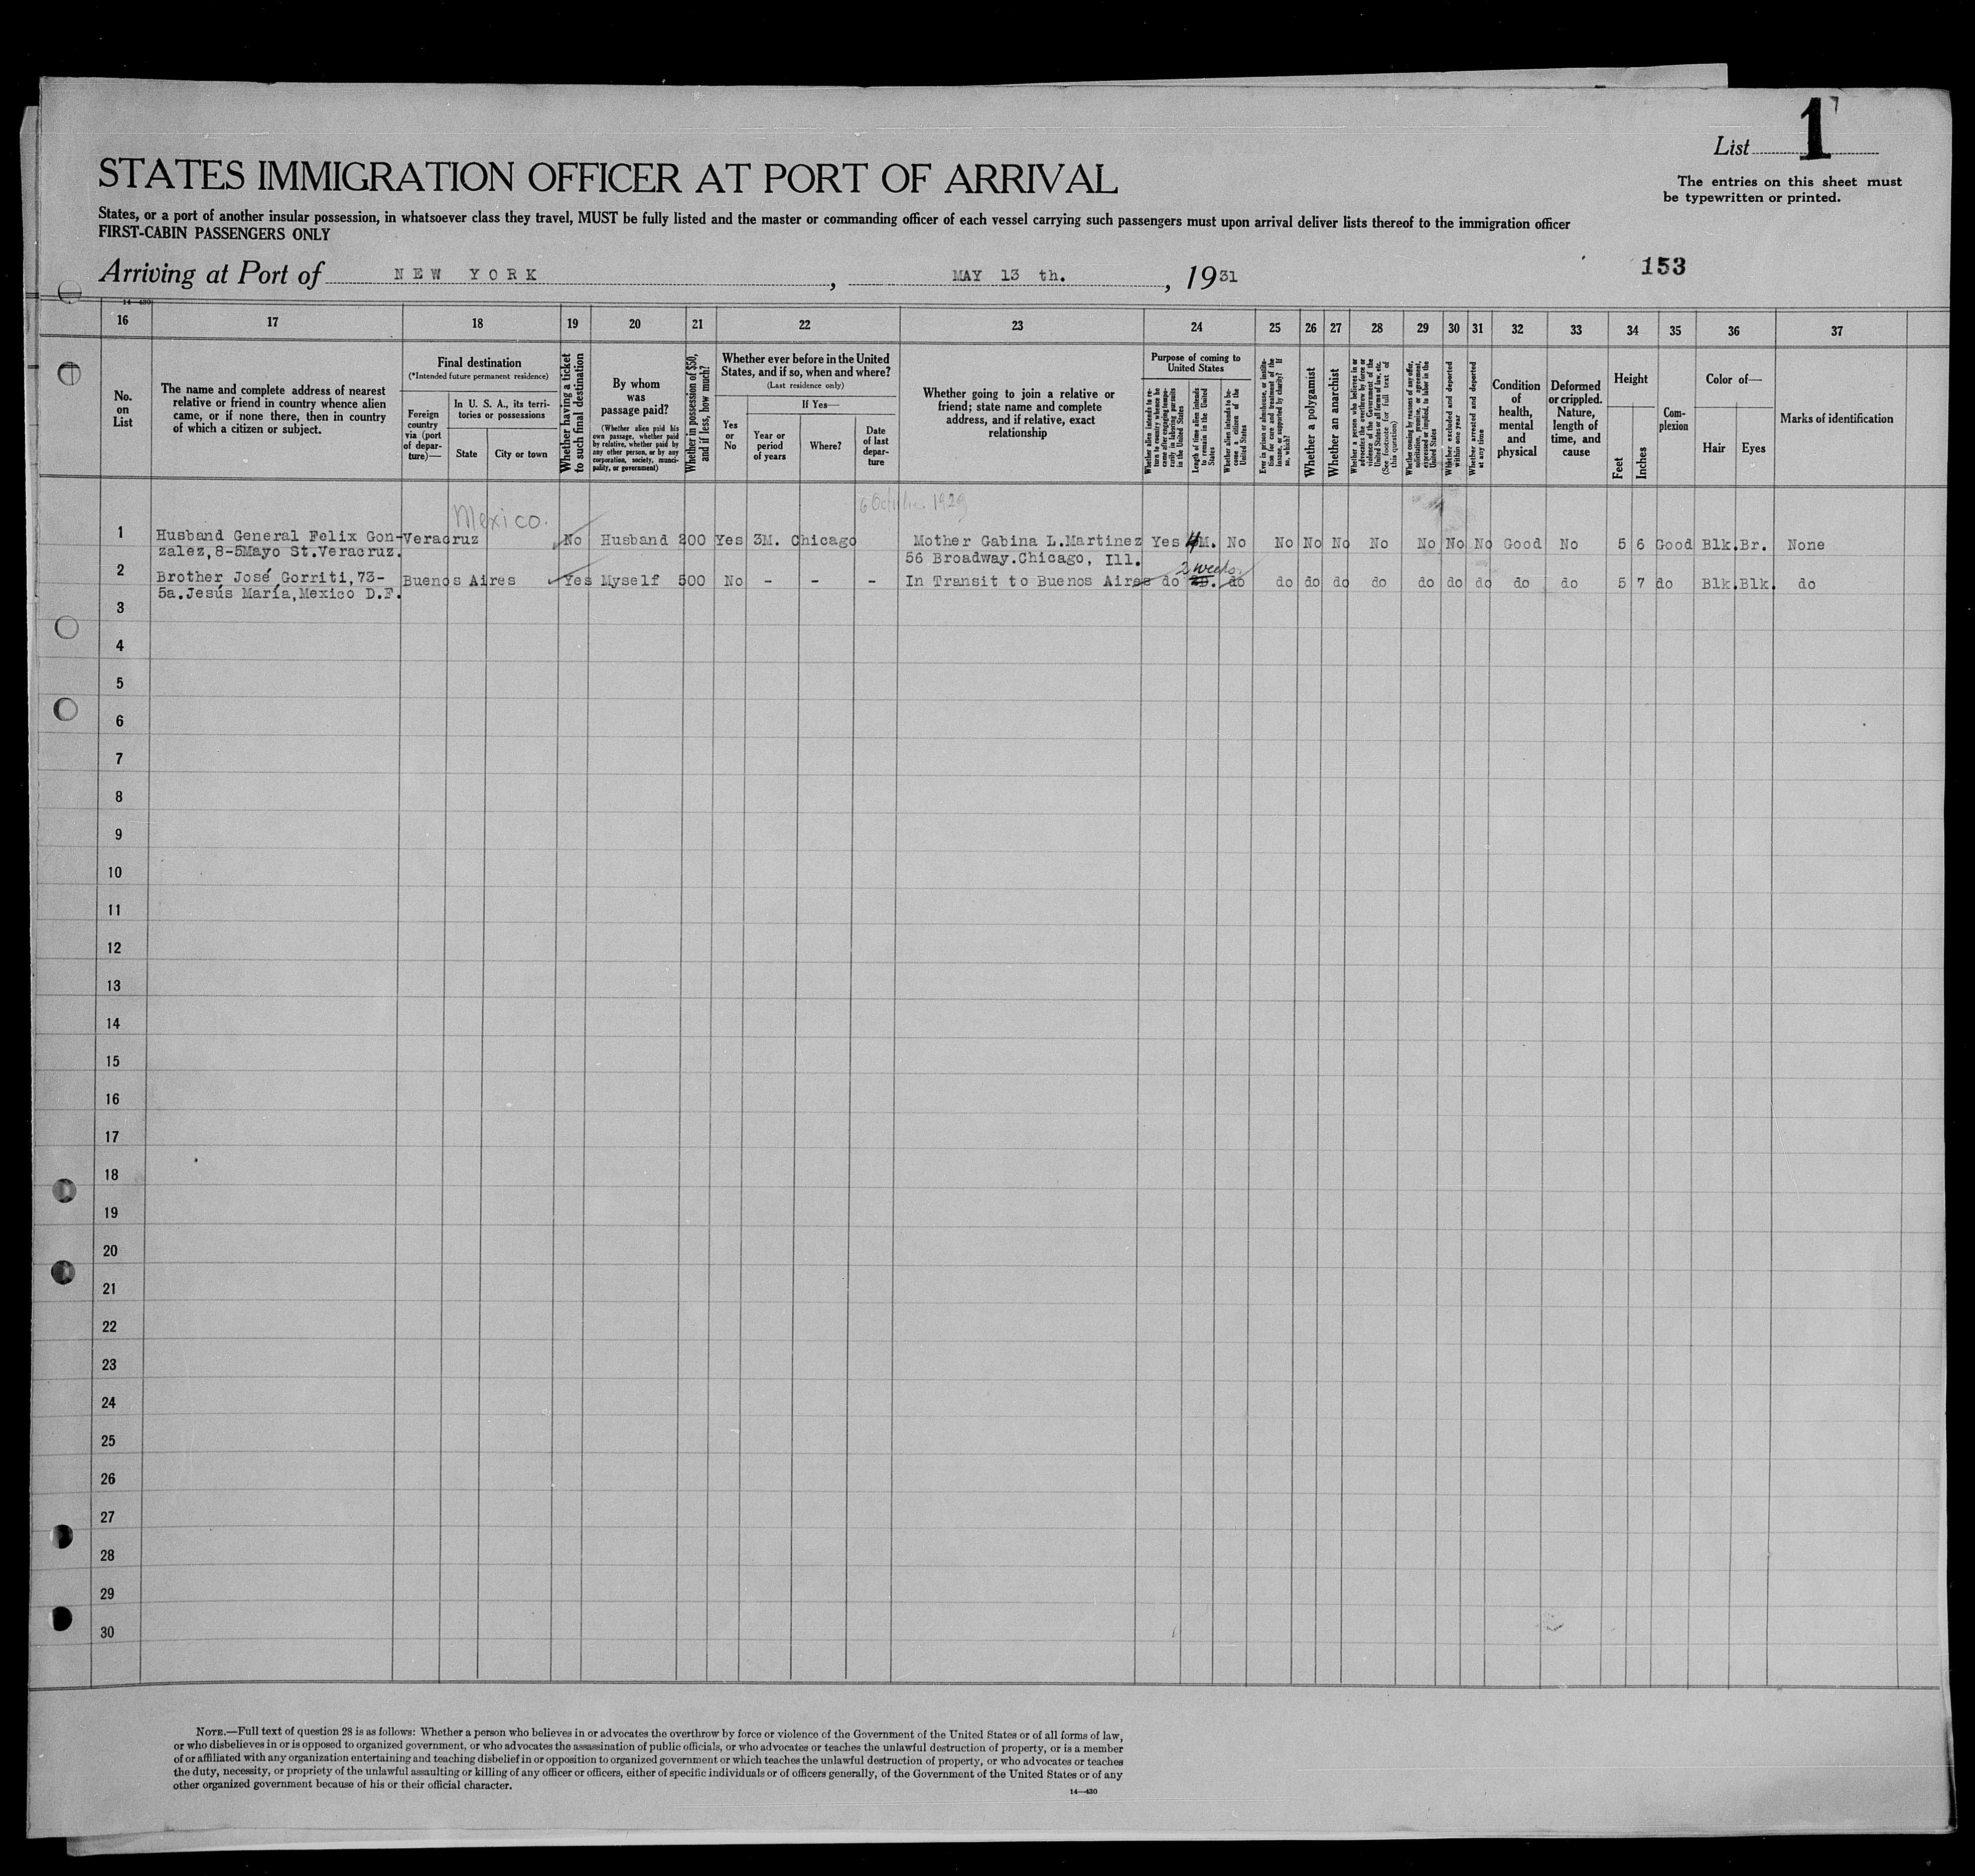 List 1
STATES IMMIGRATION OFFICER AT PORT OF ARRIVAL
The entries on this sheet must
be typewritten or printed.
States, or a port of another insular possession, in whatsoever class they travel, MUST be fully listed and the master or commanding officer of each vessel carrying such passengers must upon arrival deliver lists thereof to the immigration officer
FIRST-CABIN PASSENGERS ONLY
Arriving at Port of NEW YORK, MAY 13 th., 1931
153
14—430
16 17 18 19 20 21 22 23 24 25 26 27 28 29 30 31 32 33 34 35 36 37
No.
on
List
The name and complete address of nearest
relative or friend in country whence alien
came, or if none there, then in country
of which a citizen or subject.
Final destination
(*Intended future permanent residence)
Foreign
country
via (port
of depar-
ture)—
In U. S. A., its terri-
tories or possessions
State
City or town
Whether having a ticket
to such final destination
By whom
was
passage paid?
(Whether alien paid his
own passage, whether paid
by relative, whether paid by
any other person, or by any
corporation, society, munci-
pality, or government)
Whether in possession of $50,
and if less, how much?
Whether ever before in the United
States, and if so, when and where?
(Last residence only)
Yes
or
No
If Yes—
Year or
period
of years
Where?
Date
of last
depar-
ture
Whether going to join a relative or
friend; state name and complete
address, and if relative, exact
relationship
Purpose of coming to
United States
Whether alien intends to re-
turn to country whence he
came after engaging tempo-
rarily in laboring pursuits
in the United States
Length of time alien intends
to remain in the United
States
Whether alien intends to be-
come a citizen of the
United States
Ever in prison or almshouse, or institu-
tion for care and treatment of the
insane, or supported by charity? If
so, which?
Whether a polygamist
Whether an anarchist
Whether a person who believes in or
advocates the overthrow by force or
violence of the Government of the
United States or all forms of law, etc.
(See footnote for full text of
this question)
Whether coming by reasons of any offer,
solicitation, promise, or agreement,
expressed or implied, to labor in the
United States
Whether excluded and deported
within one year
Whether arrested and deported
at any time
Condition
of
health,
mental
and
physical
Deformed
or crippled.
Nature,
length of
time, and
cause
Height
Feet
Inches
Com-
plexion
Color of—
Hair
Eyes
Marks of identification
Mexico.
1929
1 Husband General Felix Gon- Veracruz No Husband 200 Yes 3M. Chicago Mother Gabina L.Martinez Yes 4M. No No No No No No No No Good No 5 6 Good Blk. Br. None
zalez,8-5Mayo St.Veracruz. 56 Broadway.Chicago, Ill.
2 weeks
2 Brother José Gorriti,73- Buenos Aires Yes Myself 500 No - - - In Transit to Buenos Aires do do do do do do do do do do do 5 7 do Blk. Blk. do
5a.Jesús María,Mexico D.F.
3
4
5
6
7
8
9
10
11
12
13
14
15
16
17
18
19
20
21
22
23
24
25
26
27
28
29
30
NOTE.—Full text of question 28 is as follows: Whether a person who believes in or advocates the overthrow by force or violence of the Government of the United States or of all forms of law,
or who disbelieves in or is opposed to organized government, or who advocates the assassination of public officials, or who advocates or teaches the unlawful destruction of property, or is a member
of or affiliated with any organization entertaining and teaching disbelief in or opposition to organized government or which teaches the unlawful destruction of property, or who advocates or teaches
the duty, necessity, or propriety of the unlawful assaulting or killing of any officer or officers, either of specific individuals or of officers generally, of the Government of the United States or of any
other organized government because of his or their official character.
14—430